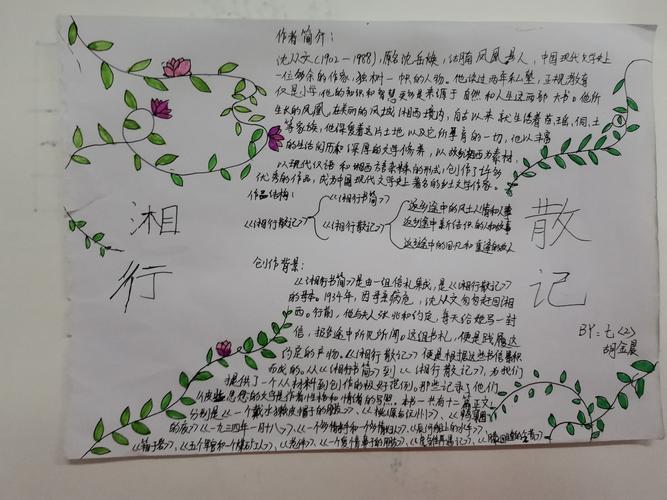 湘
行
散
记
作者简介:
沈从文(1902-1988),原名沈岳焕,湖南凤凰县人,中国现代文学史上
一位多余的作家,独树一帜的人物。他读过两年私塾,正规教育
仅是小学,他的知识和智慧更多是来源于自然和人生这两部大书。他所
生长的凤凰,在美丽的凤城湘西境内,自古以来就生活着苗、瑶、侗、土
等家族,他深爱着这片土地以及它所孕育的一切,他以丰富
的生活阅历和深厚的文学修养,以故乡湘西为素材,
以现代汉语和湘西方言杂糅的形式,创作了许多
优秀的作品,成为中国现代文学史上著名的乡土文学作家。
作品结构:
《湘行散记》
《湘行书简》
《湘行散记》
返乡途中的风土人情和人事
返乡途中新结识的人和故事
返乡途中的回忆和重逢的故人
创作背景:
《湘行书简》是由一组信札集成,是《湘行散记》
的母本。1934年,因母亲病危,沈从文匆匆赶回湘
西。行前,他与夫人张兆和约定,每天给她写一封
信,报告途中所见所闻。这组书札,便是践履这
约定的产物。《湘行散记》便是根据这些书信累积
而成的。从《湘行书简》到《湘行散记》,为我们
提供了一个从材料到创作的极好范例。那些记录了他们
思想的文字是作者性格和情绪的写照。本书一共有十二篇正文,
分别是《一个戴水獭皮帽子的朋友》、《桃源与沅州》、《鸭窠围
的夜》《一九三四年一月十八》、《一个多情水手和一个多情妇人》、《辰河小船上的水手》、
《箱子岩》、《五个军官和一个煤矿工人》、《老伴》、《一个爱惜鼻子的朋友》、
BY:七(2)
胡金晨